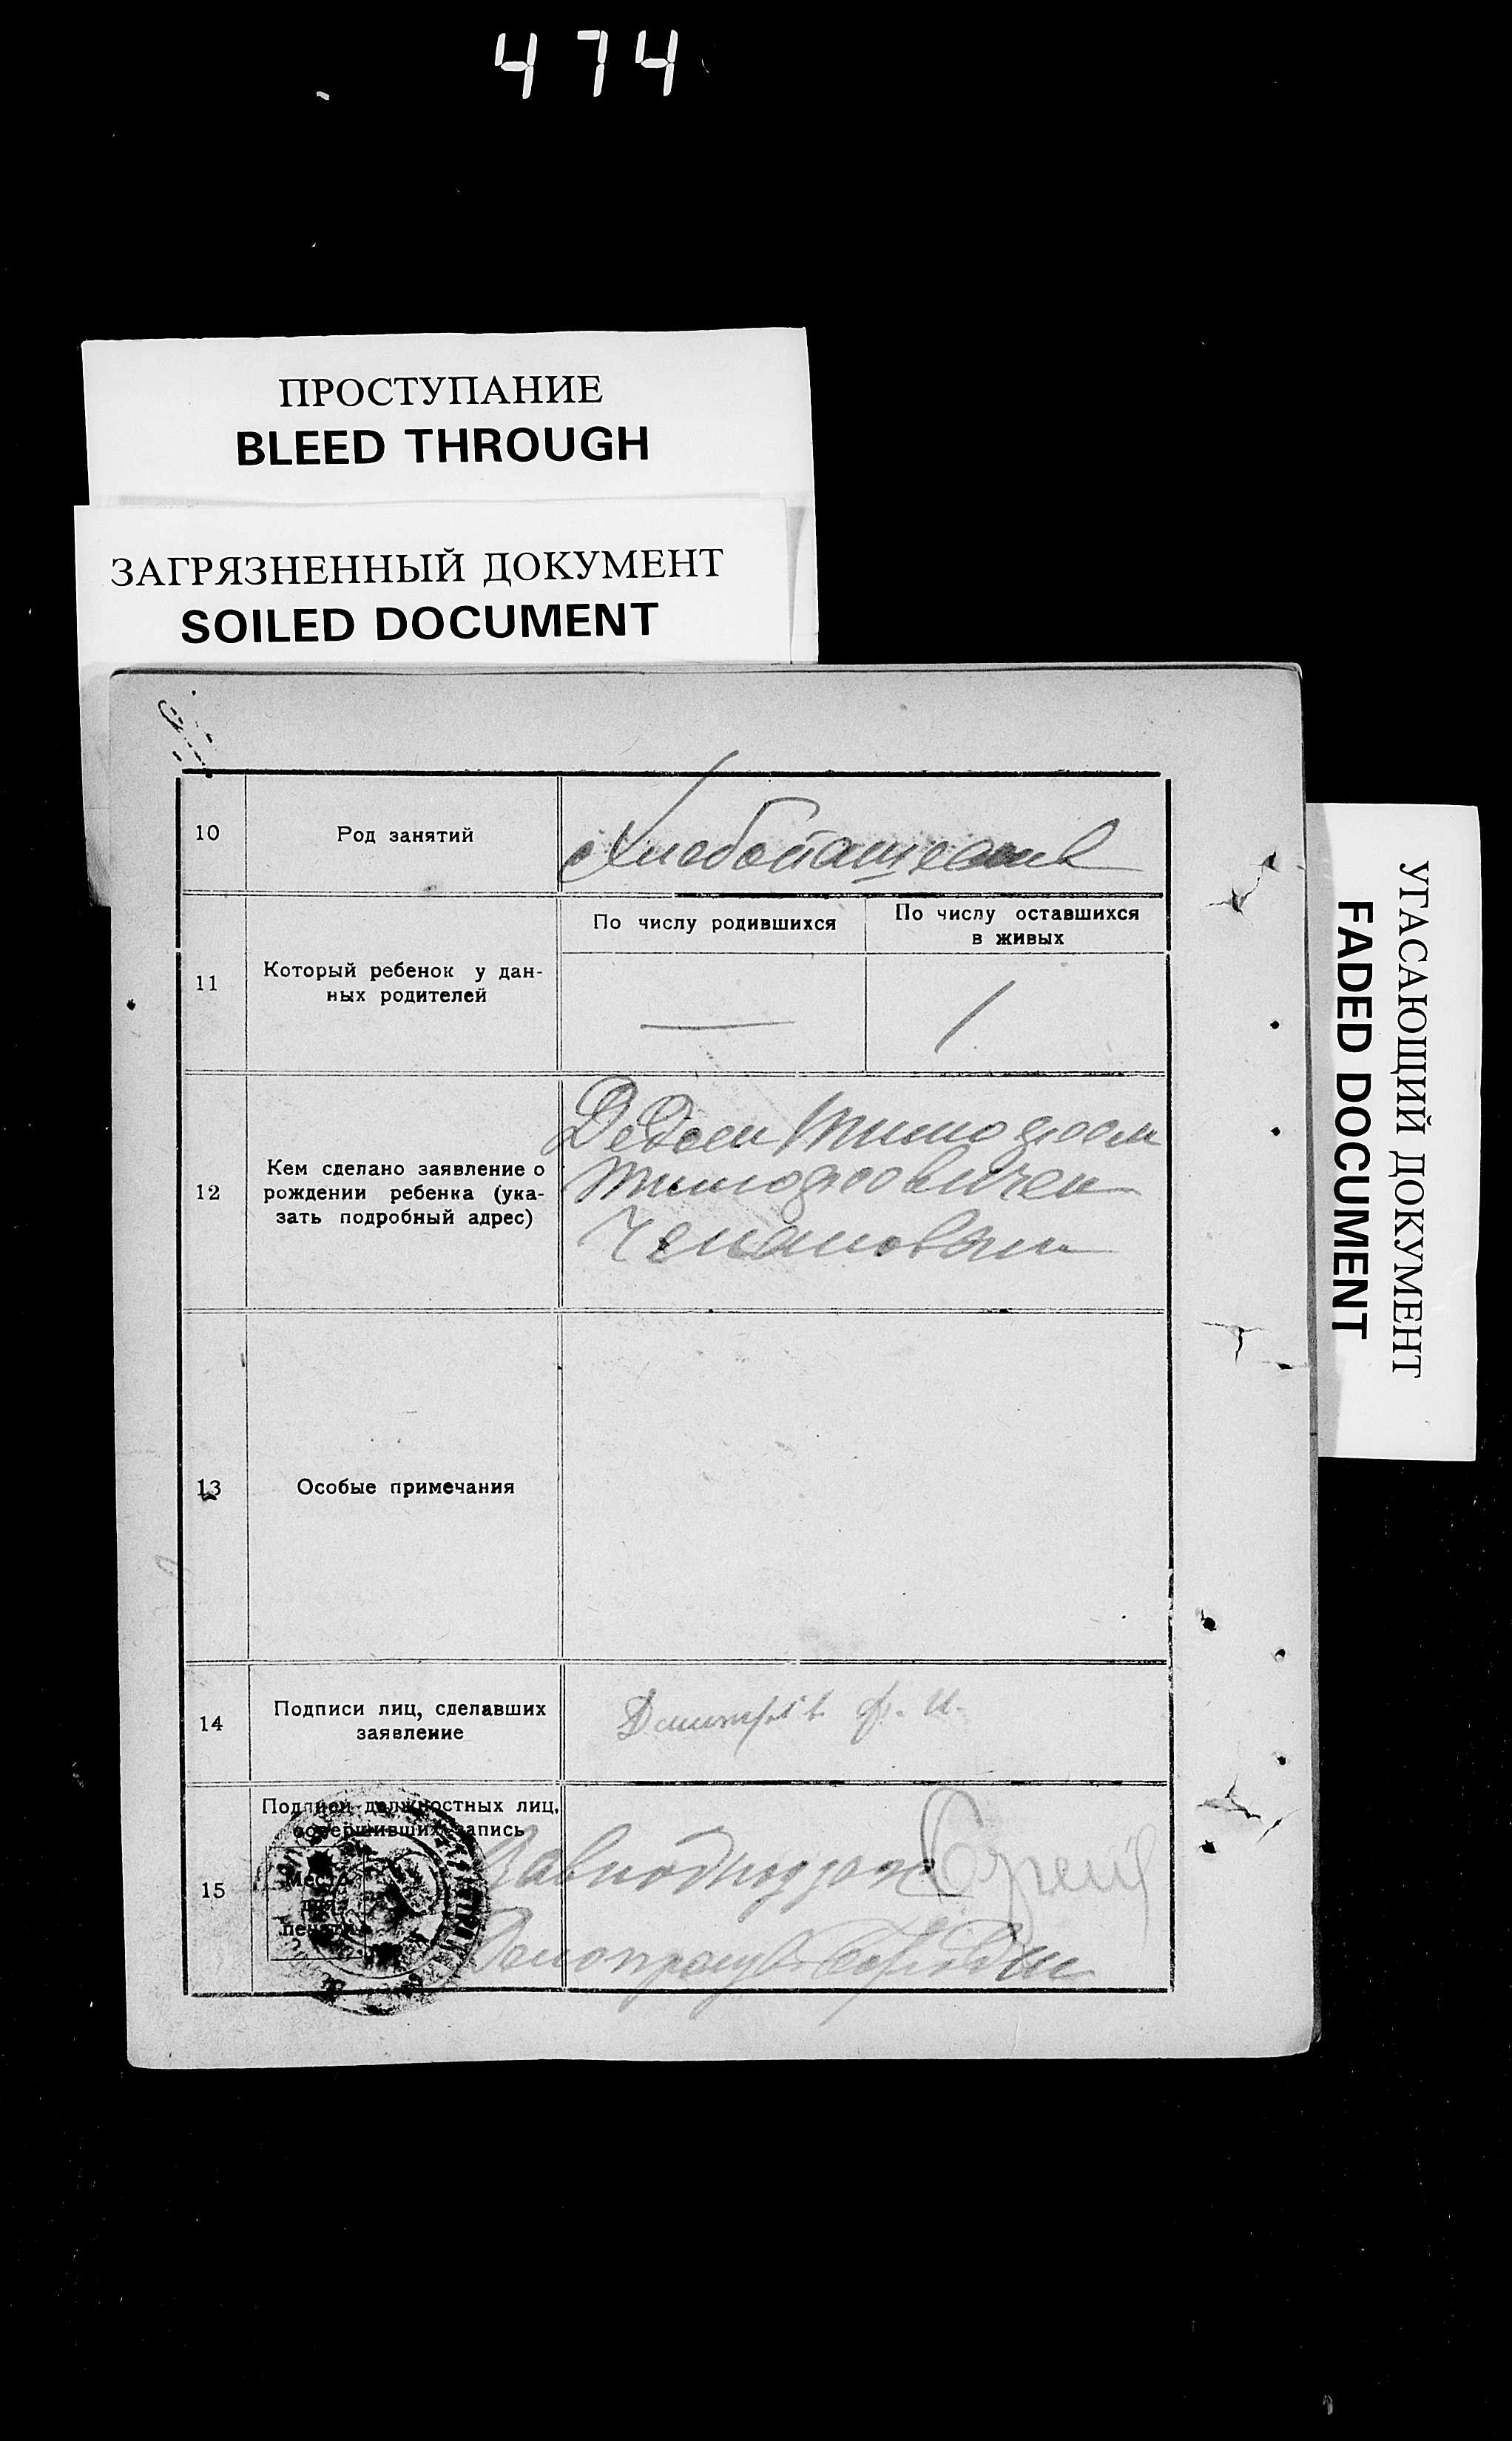 474
ПРОСТУПАНИЕ
BLEED THROUGH
ЗАГРЯЗНЕННЫЙ ДОКУМЕНТ
SOILED DOCUMENT
УГАСАЮЩИЙ ДОКУМЕНТ
FADED DOCUMENT
10 Род занятий
Хлебопашество
11 Который ребенок у дан-
ных родителей
По числу родившихся
—
По числу оставшихся
в живых
1
12 Кем сделано заявление о
рождении ребенка (ука-
зать подробный адрес)
Дедом Тимофеем
Тимофеевичем
13 Особые примечания
14 Подписи лиц, сделавших
заявление
Ф. И.
15 Подписи должностных лиц,
совершивших запись
Место
для
печати